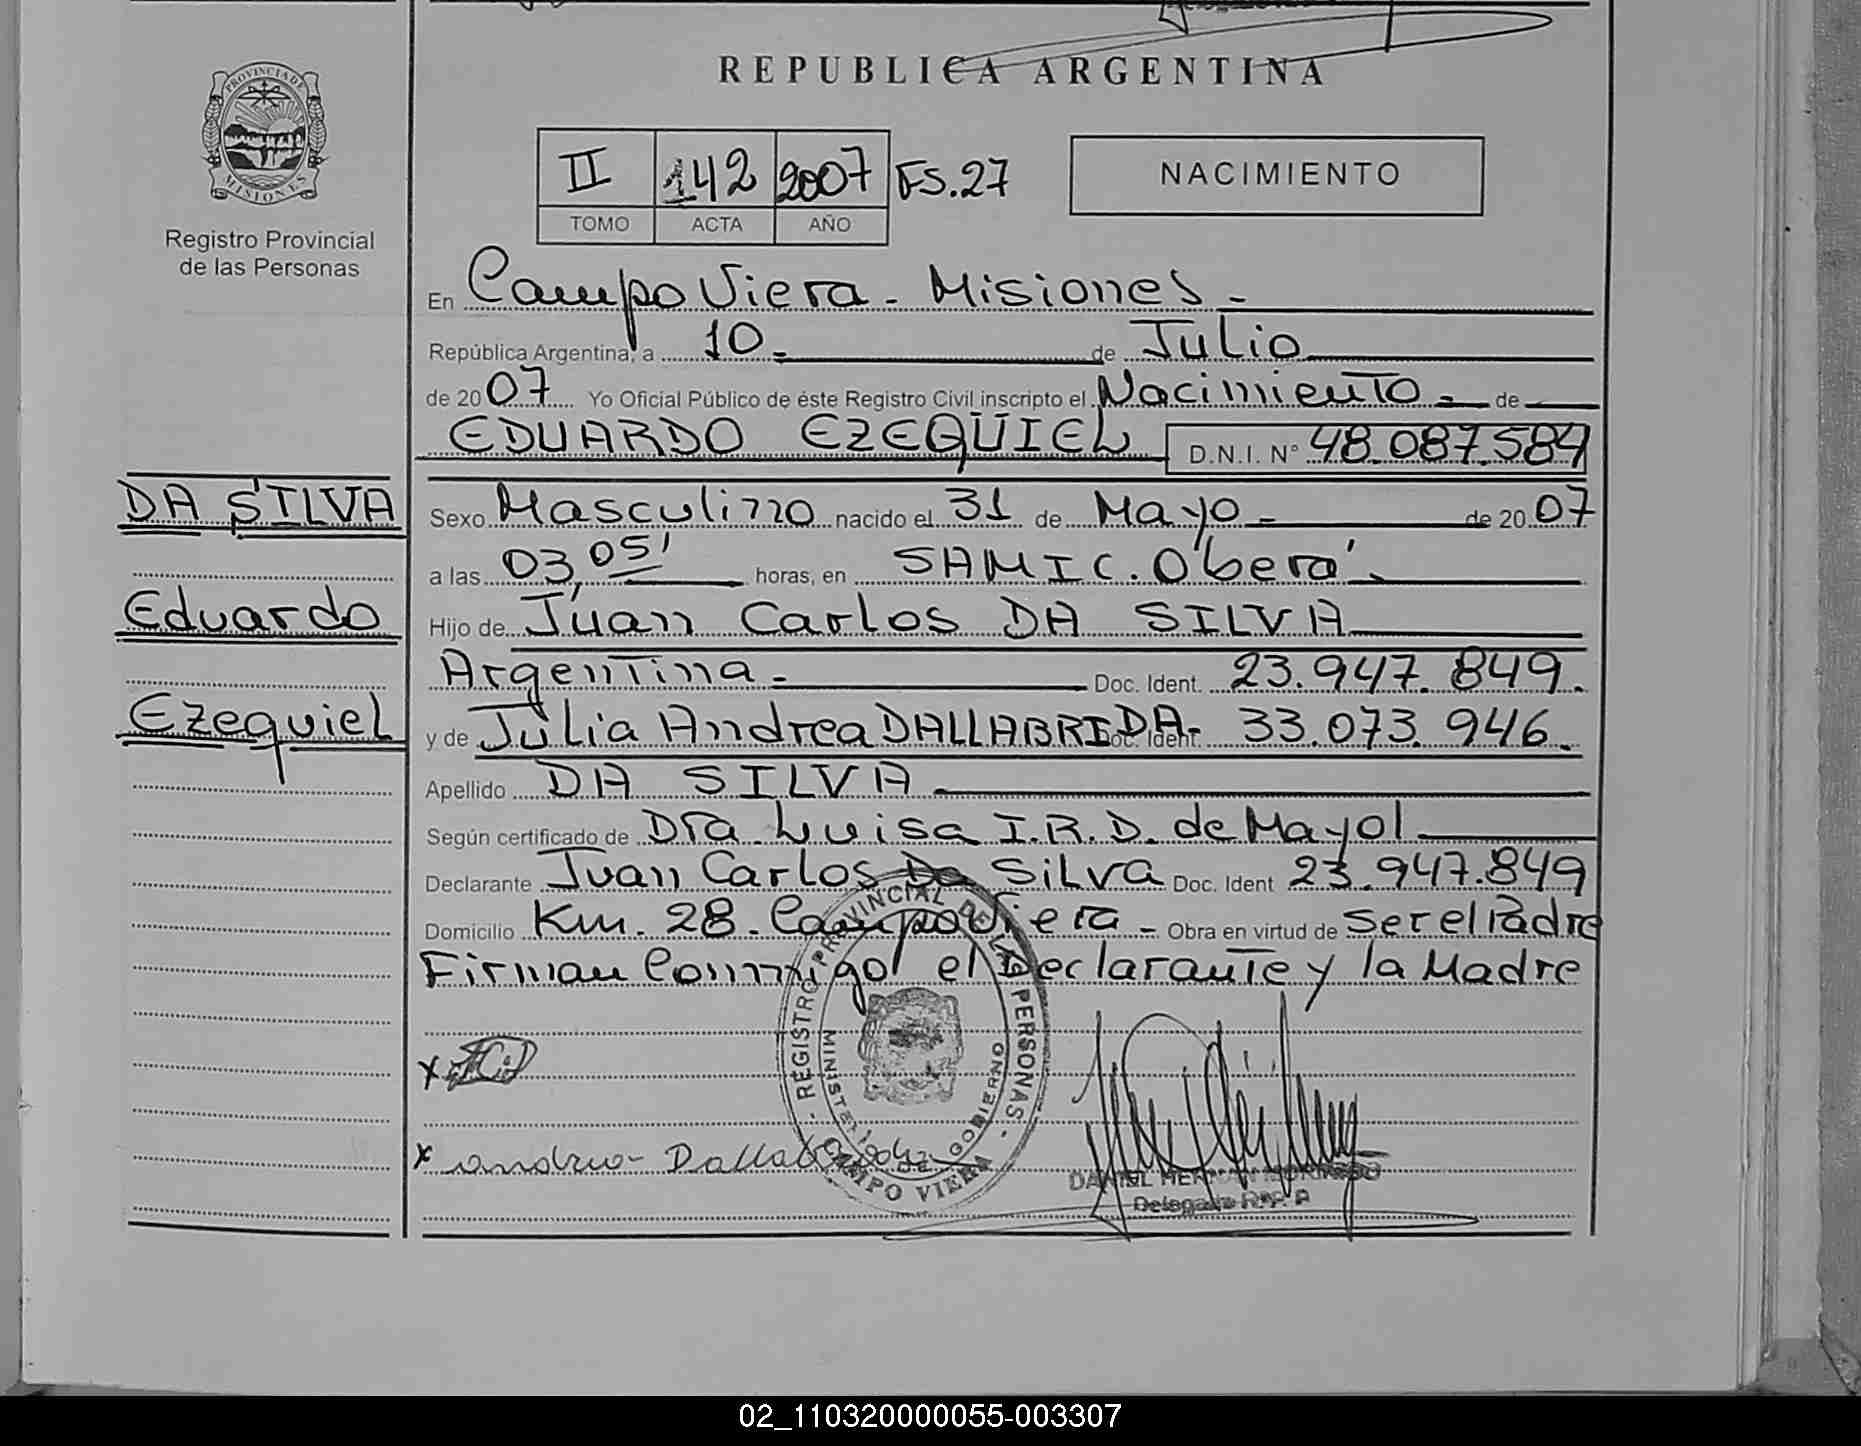 REPUBLICA ARGENTINA
PROVINCIA DE
MISIONES
Registro Provincial
de las Personas
II 142 2007 FS.27
TOMO ACTA AÑO
NACIMIENTO
En Campo Viera - Misiones -
República Argentina, a 10 de Julio
de 2007 Yo Oficial Público de éste Registro Civil inscripto el Nacimiento - de
EDUARDO EZEQUIEL D.N.I. N° 48.087.584
DA SILVA
Eduardo
Ezequiel
Sexo Masculino nacido el 31 de Mayo - de 2007
a las 03,05' horas, en SAMIC. Oberá -
Hijo de Juan Carlos DA SILVA
Argentina - Doc. Ident. 23.947.849.
y de Julia Andrea DALLABRIDA - Doc. Ident. 33.073.946.
Apellido DA SILVA
Según certificado de Dra. Luisa I.R.D. de Mayol
Declarante Juan Carlos Da Silva Doc. Ident 23.947.849
Domicilio Km. 28. Campo Viera - Obra en virtud de ser el Padre
Firman Conmigo el Declarante y la Madre
REGISTRO PROVINCIAL DE LAS PERSONAS
GOBIERNO
CAMPO VIERA
x
x
DANIEL HERNAN
Delegado R.P.P
02_110320000055-003307